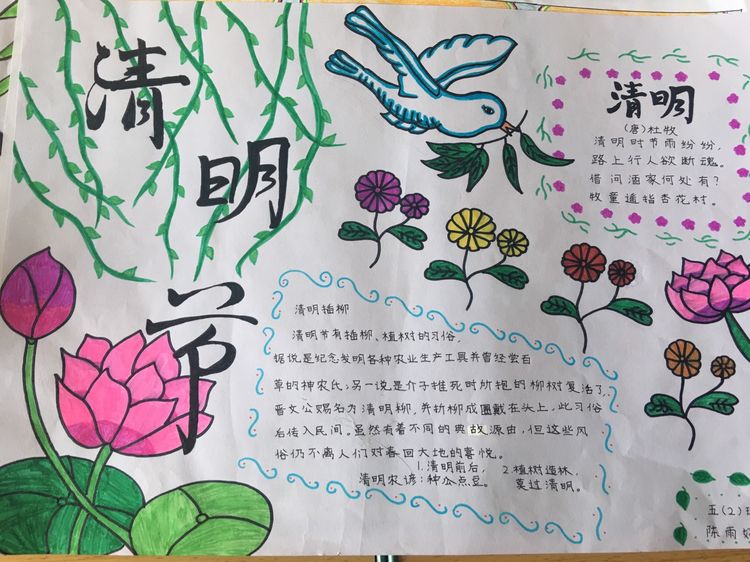 清明节
清明
(唐)杜牧
清明时节雨纷纷,
路上行人欲断魂。
借问酒家何处有?
牧童遥指杏花村。
清明插柳
清明节有插柳、植树的习俗,
据说是纪念发明各种农业生产工具并曾经尝百
草的神农氏;另一说是介子推死时所抱的柳树复活了,
晋文公赐名为清明柳,并折柳成圈戴在头上,此习俗
后传入民间。虽然有着不同的典故源由,但这些风
俗仍不离人们对春回大地的喜悦。
清明农谚:
1.清明前后,
种瓜点豆。
2.植树造林,
莫过清明。
五(2)
陈雨